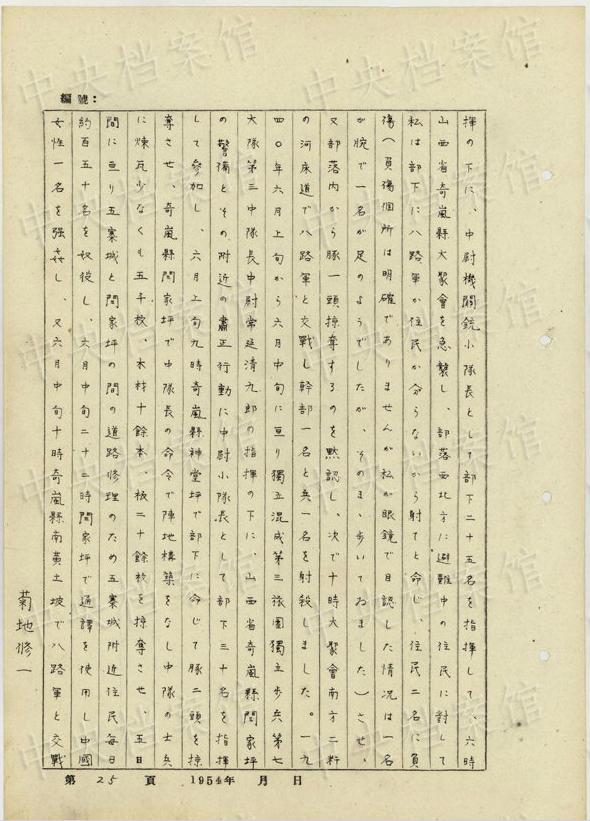 編號：
揮の下に、中尉機関銃小隊長として部下二十五名を指揮して、六時
山西省奇嵐縣大聚會を急襲し、部落西北方に避難中の住民に対して
私は部下に八路軍か住民か分らないから射てと命じ、住民二名に負
傷（負傷個所は明確でありませんが私が眼鏡で目認した情況は一名
が腕で一名が足のようでしたが、そのまゝ歩いてゐました）させ、
又部落内から豚一頭掠奪するのを黙認し、次で十時大聚會南方二粁
の河床道で八路軍と交戦し幹部一名と兵一名を射殺しました。一九
四〇年六月上旬から六月中旬に亘り獨立混成第三旅團獨立歩兵第七
大隊第三中隊長中尉常延清九郎の指揮の下に、山西省奇嵐縣閻家坪
の警備とその附近の粛正行動に中尉小隊長として部下三十名を指揮
して参加し、六月上旬九時奇嵐縣神堂坪で部下に命じて豚二頭を掠
奪させ、奇嵐縣閻家坪で中隊長の命令で陣地構築をなし中隊の士兵
に煉瓦少なくも五千枚、木材十餘本、板二十餘枚を掠奪させ、五日
間に亘り五寨城と閻家坪の間の道路修理のため五寨城附近住民毎日
約百五十名を奴役し、六月中旬二十三時閻家坪で通譯を使用し中國
女性一名を強姦し、又六月中旬十時奇嵐縣南黄土坡で八路軍と交戦
菊地修一
第 25 頁 1954年 月 日
中央档案馆